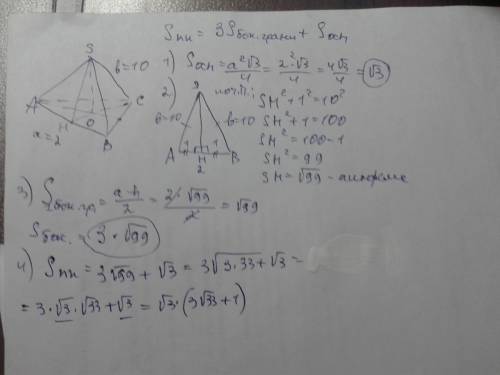 Sпп = 3Sбок.грани + Sосн
S
b=10
A
C
O
H
B
a=2
1) Sосн = a²√3/4 = 2²·√3/4 = 4√3/4 = √3
2)
S
b=10
b=10
A
H
B
1
1
2
SH²+1²=10²
SH²+1=100
SH²=100-1
SH²=99
SH=√99 - апофема
3) Sбок.гр = a·h/2 = 2·√99/2 = √99
Sбок. = 3·√99
4) Sпп = 3√99 + √3 = 3√3·33 + √3 =
= 3·√3·√33 + √3 = √3·(3√33+1)